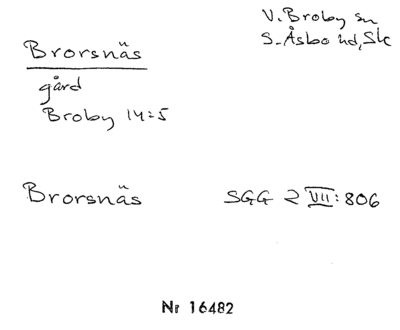 V. Broby sn
S. Åsbo hd, Sk
Brorsnäs
gård
Broby 14:5
Brorsnäs SGG 2 VII: 806
Nr 16482